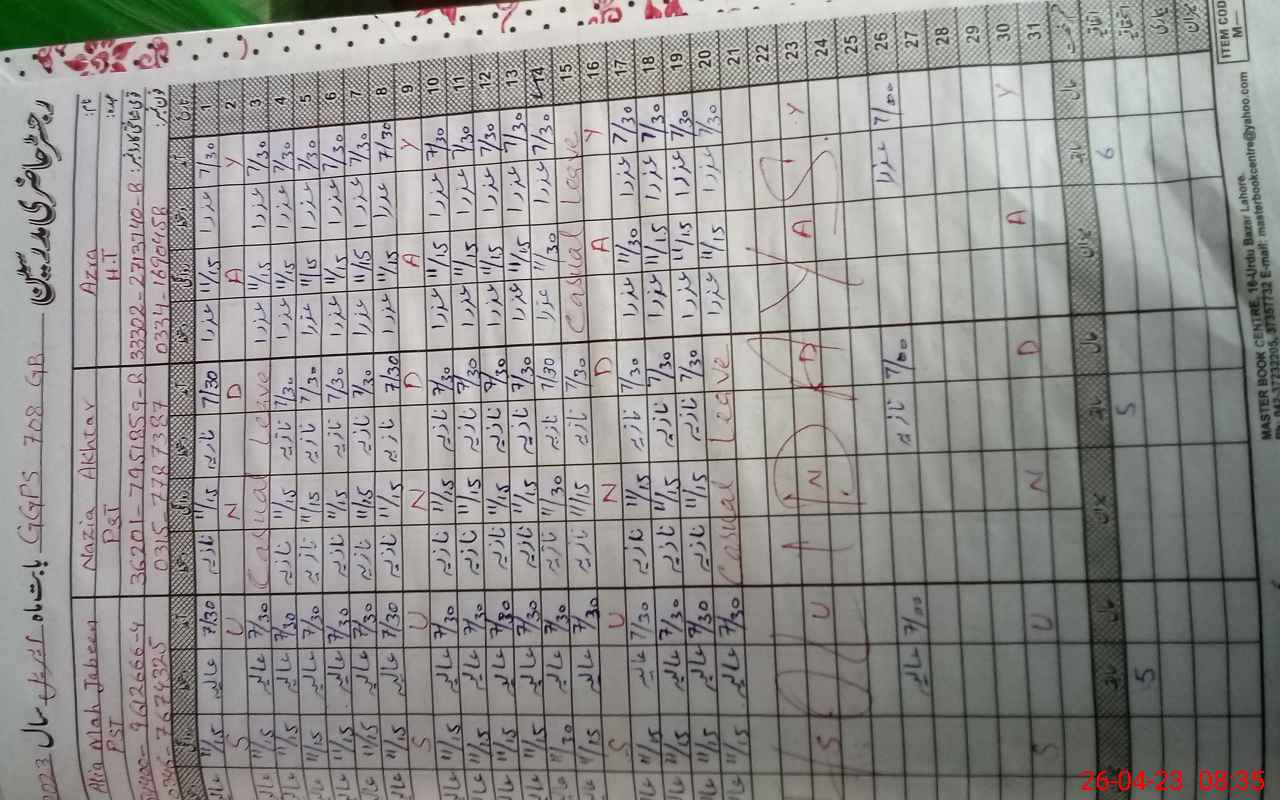 رجسٹر حاضری مدرسین GGPS 708 GB بابت ماہ اپریل سال 2023
نام: Azia Nazia Akhtar Alia Mah Jabeen
عہدہ: H.T PST PST
33302-2713740-8 36201-7951859-8
0315-7787387 7674325
تاریخ
1 7/30 عذرا 11/15 عذرا 7/30 نازیہ 11/15 نازیہ 7/30 عالیہ 11/15 عالیہ
2 Y A D N U S
3 7/30 عذرا 11/15 عذرا Casual Leave 7/30 عالیہ 11/15 عالیہ
4 7/30 عذرا 11/15 عذرا 7/30 نازیہ 11/15 نازیہ 7/30 عالیہ 11/15 عالیہ
5 7/30 عذرا 11/15 عذرا 7/30 نازیہ 11/15 نازیہ 7/30 عالیہ 11/15 عالیہ
6 7/30 عذرا 11/15 عذرا 7/30 نازیہ 11/15 نازیہ 7/30 عالیہ 11/15 عالیہ
7 7/30 عذرا 11/15 عذرا 7/30 نازیہ 11/15 نازیہ 7/30 عالیہ 11/15 عالیہ
8 7/30 عذرا 11/15 عذرا 7/30 نازیہ 11/15 نازیہ 7/30 عالیہ 11/15 عالیہ
9 Y A D N U S
10 7/30 عذرا 11/15 عذرا 7/30 نازیہ 11/15 نازیہ 7/30 عالیہ 11/15 عالیہ
11 7/30 عذرا 11/15 عذرا 7/30 نازیہ 11/15 نازیہ 7/30 عالیہ 11/15 عالیہ
12 7/30 عذرا 11/15 عذرا 7/30 نازیہ 11/15 نازیہ 7/30 عالیہ 11/15 عالیہ
13 7/30 عذرا 11/15 عذرا 7/30 نازیہ 11/15 نازیہ 7/30 عالیہ 11/15 عالیہ
14 7/30 عذرا 11/30 عذرا 7/30 نازیہ 11/30 نازیہ 7/30 عالیہ 11/30 عالیہ
15 Casual Leave 7/30 نازیہ 11/15 نازیہ 7/30 عالیہ 11/15 عالیہ
16 Y A D N U S
17 7/30 عذرا 11/30 عذرا 7/30 نازیہ 11/15 نازیہ 7/30 عالیہ 11/15 عالیہ
18 7/30 عذرا 11/15 عذرا 7/30 نازیہ 11/15 نازیہ 7/30 عالیہ 11/15 عالیہ
19 7/30 عذرا 11/15 عذرا 7/30 نازیہ 11/15 نازیہ 7/30 عالیہ 11/15 عالیہ
20 7/30 عذرا 11/15 عذرا Casual Leave 7/30 عالیہ 11/15 عالیہ
21
22
23 Y A D N U S
24
25
26 7/00 عذرا 7/00 نازیہ 7/00 عالیہ
27
28
29
30 Y A D N U S
31
6 5 5
ITEM COD
M—
MASTER BOOK CENTRE, 16-Urdu Bazar Lahore.
E-mail: masterbookcentre@yahoo.com
26-04-23 08:35